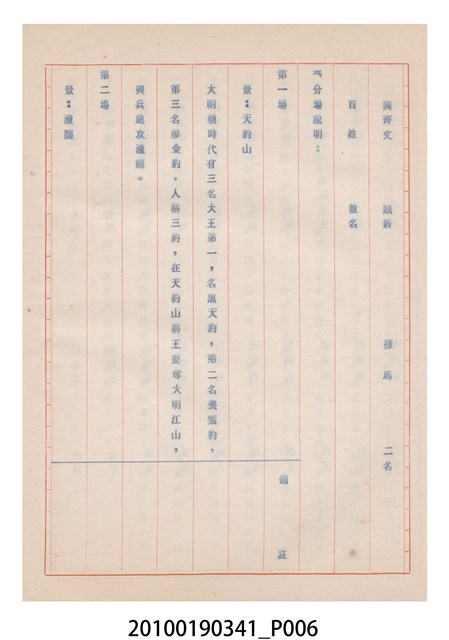 齊文　　賊將　　探馬　　二名
百姓　　數名
分場說明：
第一場　　備　註
景：天豹山
大明朝時代有三名大王第一，名　天豹，第二名　雲豹，
第三名廖金豹，人稱三豹，在天豹山稱王要奪大明江山，
興兵進攻潼關。
第二場
景：潼關
20100190341_P006